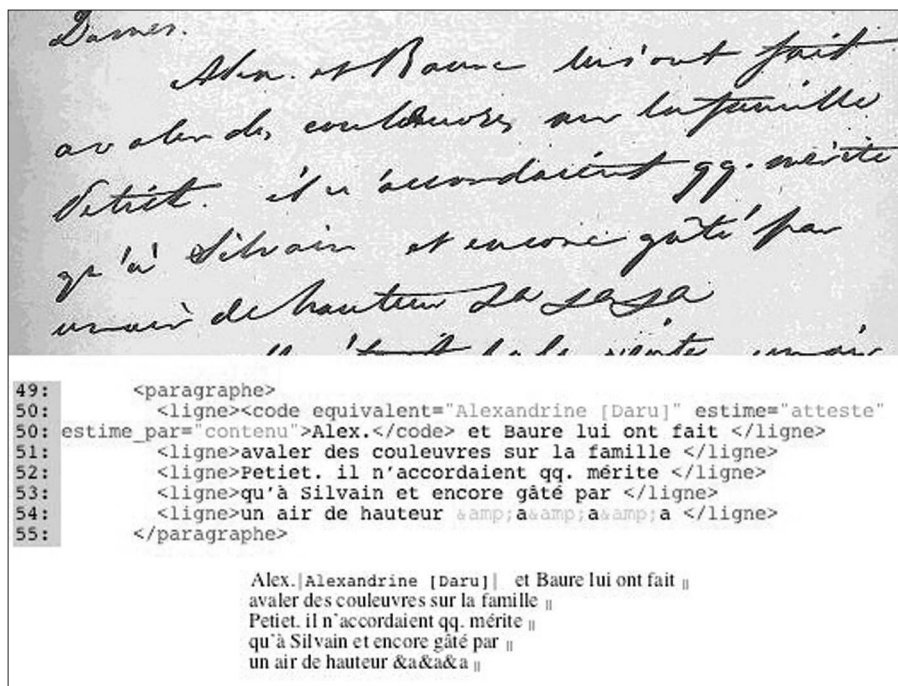 Dames.
Alex. et Baure lui ont fait
avaler des couleuvres sur la famille
Petiet. il n'accordaient qq. mérite
qu'à Silvain et encore gâté par
un air de hauteur &a &a &a
49: <paragraphe>
50: <ligne><code equivalent="Alexandrine [Daru]" estime="atteste"
50: estime_par="contenu">Alex.</code> et Baure lui ont fait </ligne>
51: <ligne>avaler des couleuvres sur la famille </ligne>
52: <ligne>Petiet. il n'accordaient qq. mérite </ligne>
53: <ligne>qu'à Silvain et encore gâté par </ligne>
54: <ligne>un air de hauteur &amp;a&amp;a&amp;a </ligne>
55: </paragraphe>
Alex.|Alexandrine [Daru]| et Baure lui ont fait ||
avaler des couleuvres sur la famille ||
Petiet. il n'accordaient qq. mérite ||
qu'à Silvain et encore gâté par ||
un air de hauteur &a&a&a ||